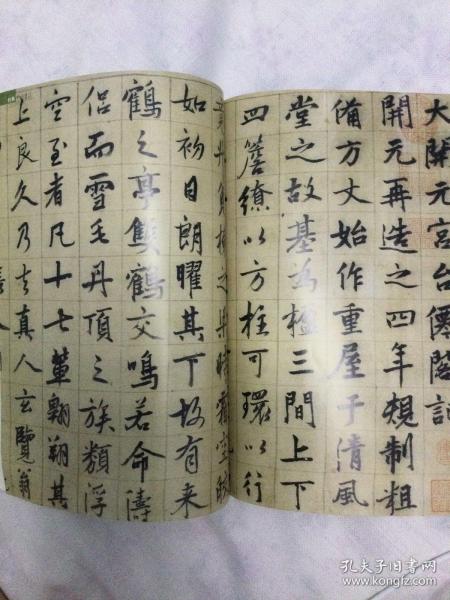 大開元宮台僊閣記
開元再造之四年規制粗
備方丈始作重屋于清風
堂之故基為楹三間上下
四簷繚以方柱可環以行
如初日朗曜其下故有來
鶴之亭雙鶴交鳴若命儔
侣而雪毛丹頂之族類浮
空至者凡十七輩翱翔其
上良久乃去真人玄覽翁
孔夫子旧书网
www.kongfz.com